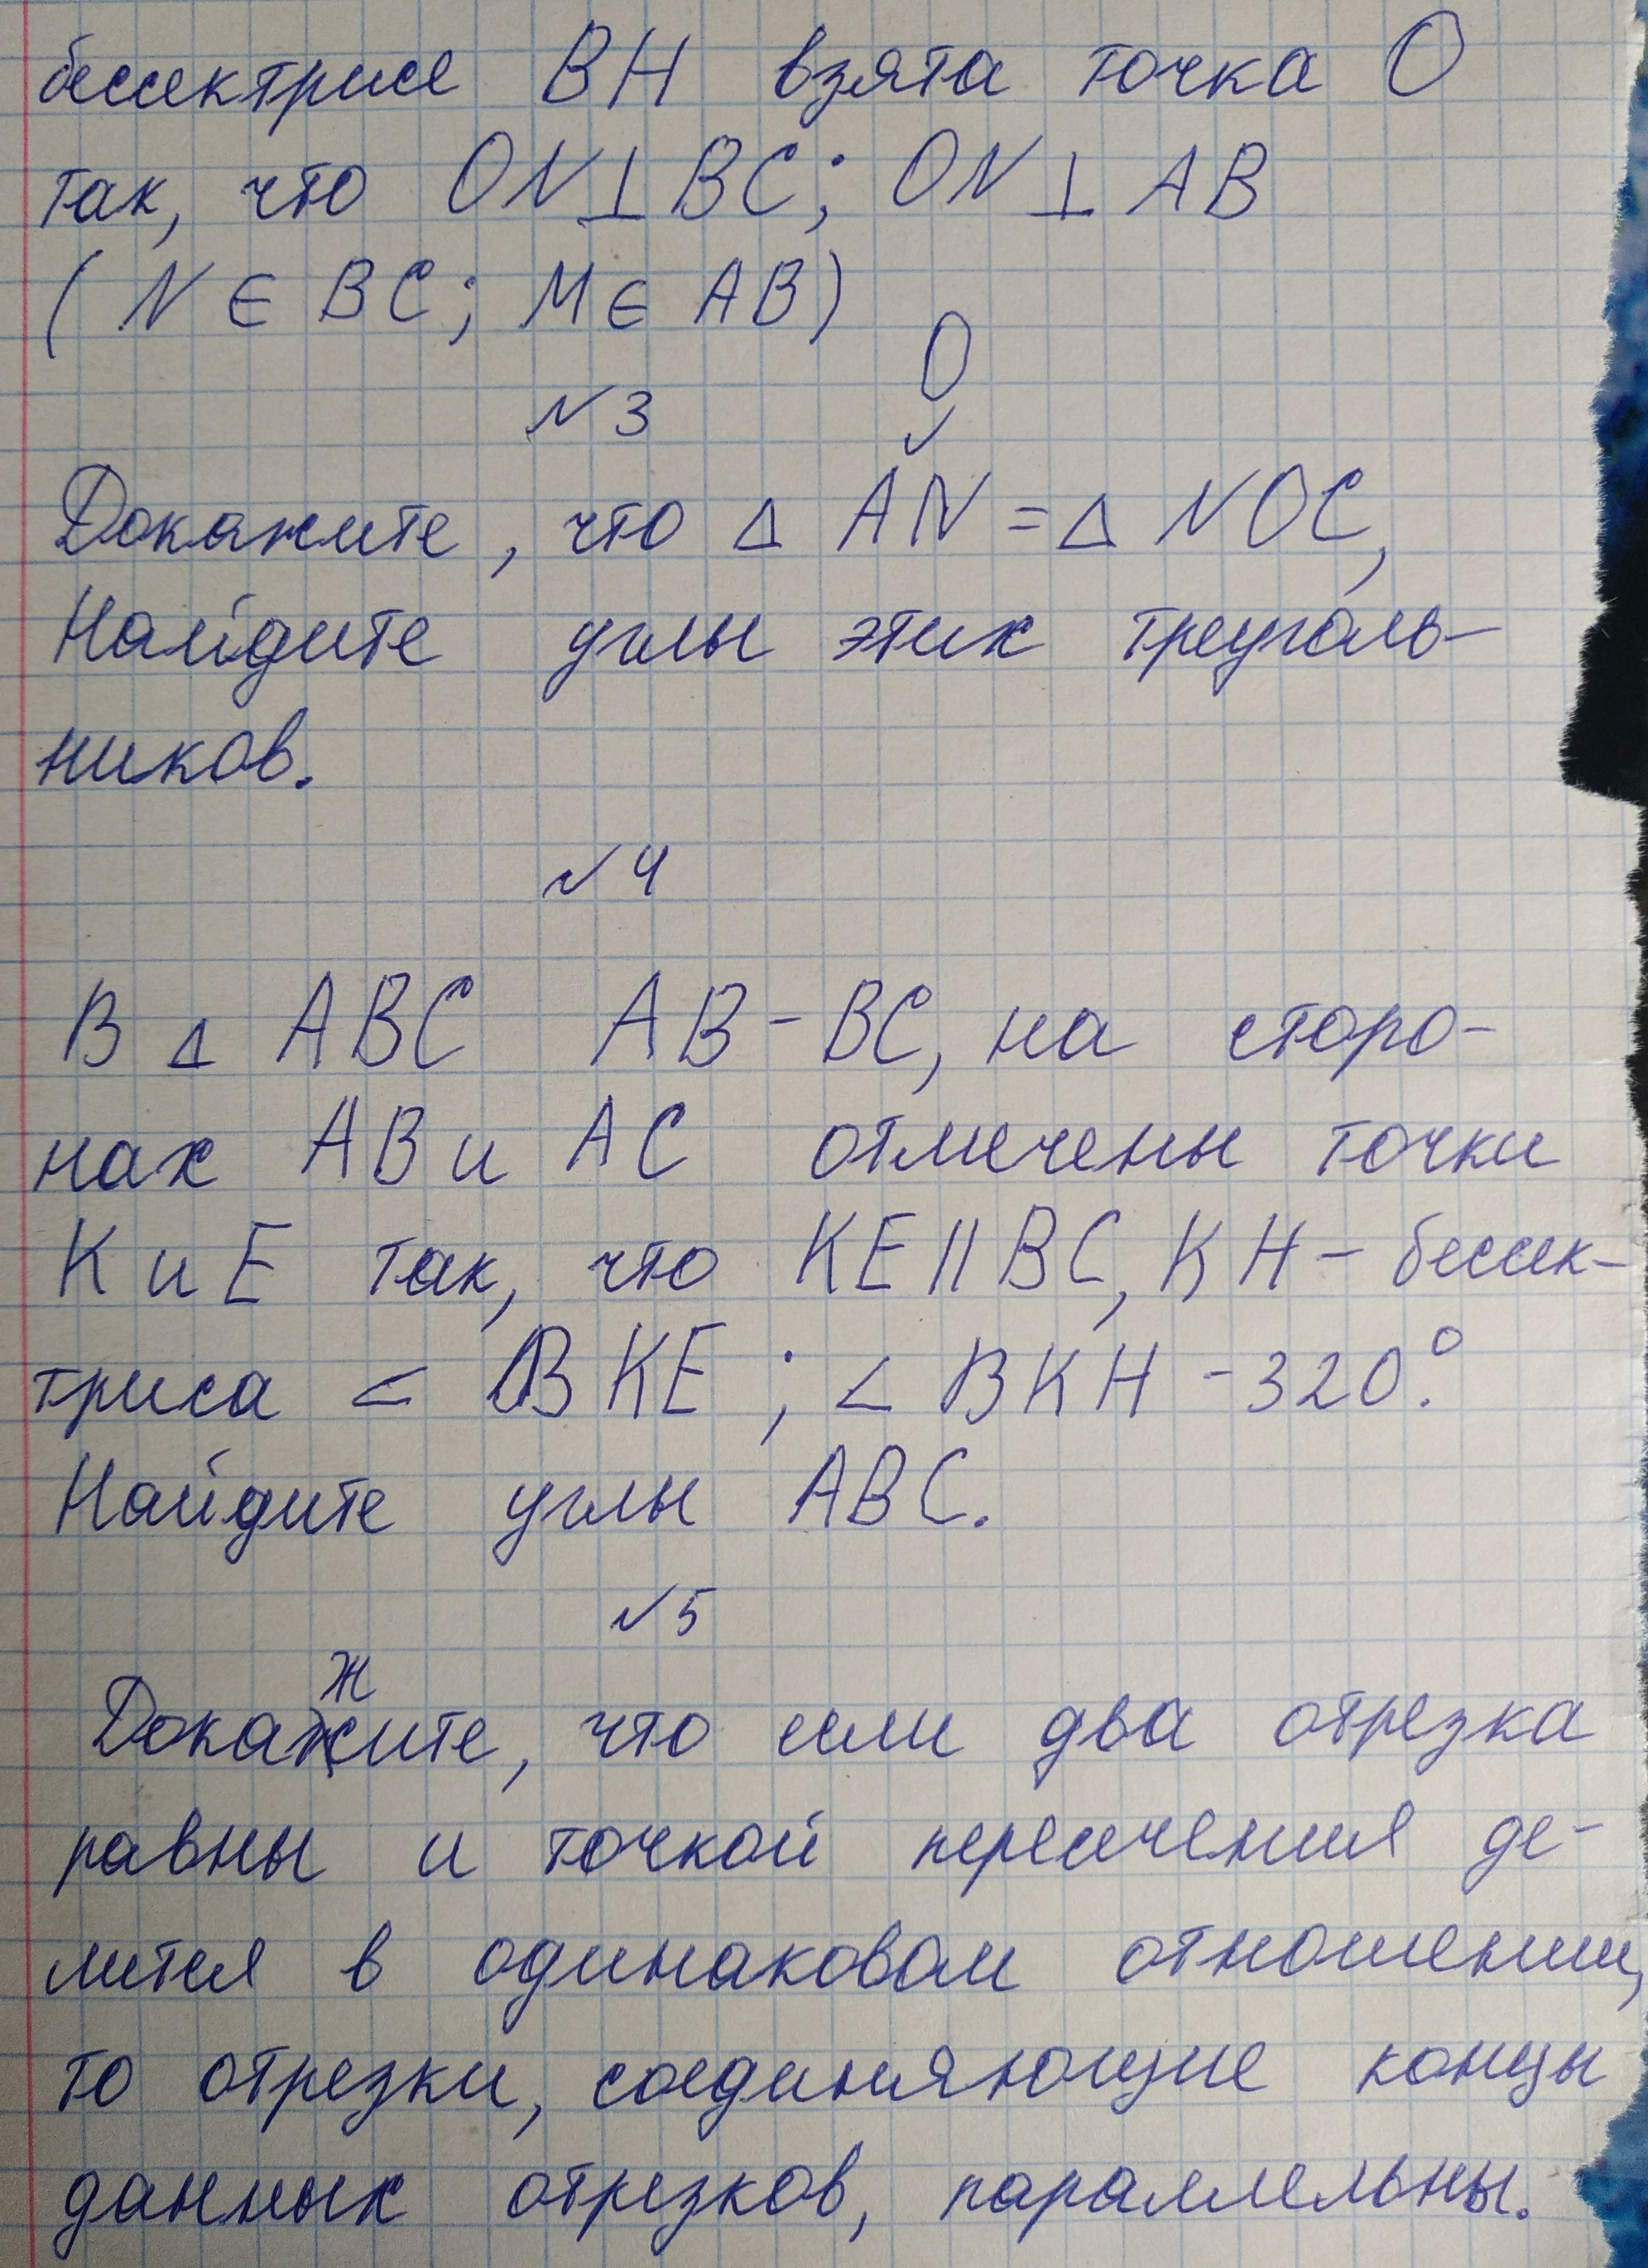 бессектрисе ВН взята точка О
так, что ON⊥BC; ON⊥AB
(N∈BC; M∈AB)
№3 О
Докажите, что △ AN = △ NOC,
Найдите углы этих треуголь-
ников.
№4
В △ ABC AB-BC, на сторо-
нах АВ и АС отмечены точки
К и Е так, что KE||BC, KH- бессек-
триса ∠ BKE; ∠ BKH -320°.
Найдите углы ABC.
№5
ж
Докажите, что если два отрезка
равны и точкой пересечения де-
лится в одинаковом отношении,
то отрезки, соединяющие концы
данных отрезков, параллельны.